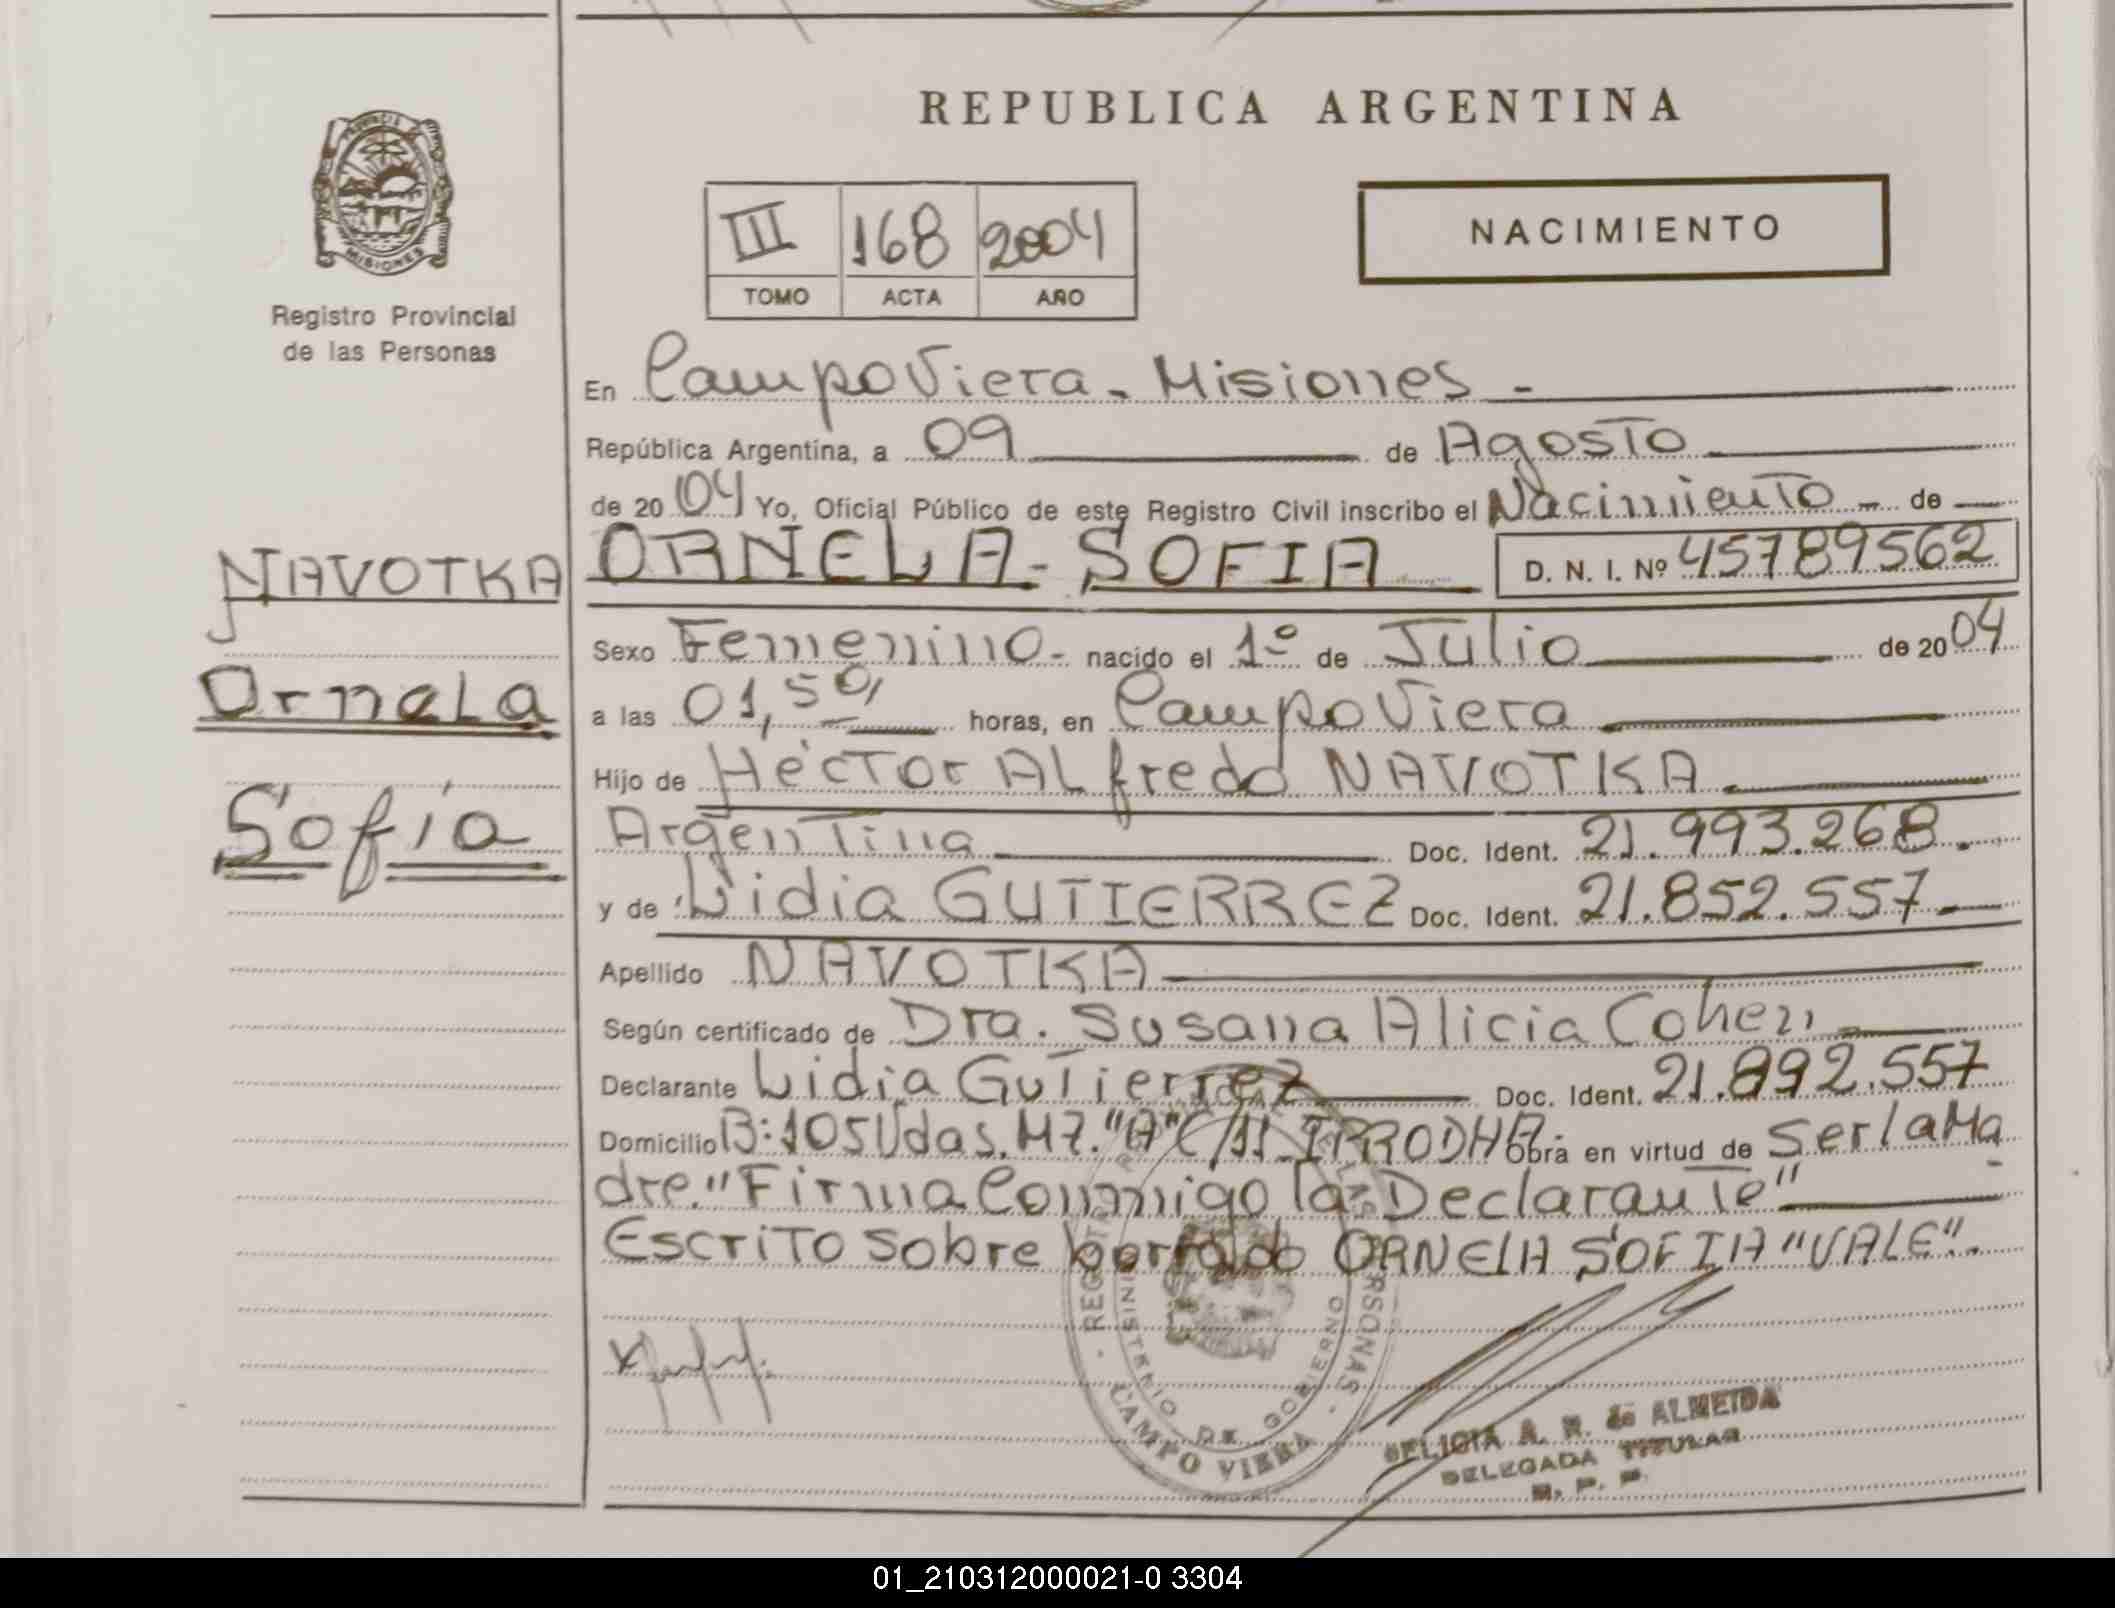 PROVINCIA
MISIONES
Registro Provincial
de las Personas
NAVOTKA
Ornela
Sofía
REPUBLICA ARGENTINA
III 168 2004
TOMO ACTA AÑO
NACIMIENTO
En Campo Viera - Misiones -
República Argentina, a 09 de Agosto
de 2004 Yo, Oficial Público de este Registro Civil inscribo el Nacimiento - de
ORNELA - SOFIA D. N. I. Nº 45789562
Sexo Femenino - nacido el 1º de Julio de 2004
a las 01,50 horas, en Campo Viera
Hijo de Héctor Alfredo NAVOTKA
Argentina Doc. Ident. 21.993.268.
y de Lidia GUTIERREZ Doc. Ident. 21.852.557
Apellido NAVOTKA
Según certificado de Dra. Susana Alicia Cohen
Declarante Lidia Gutierrez Doc. Ident. 21.892.557
Domicilio B: 105 Vdas. MZ. "A" C/11 IPRODHA Obra en virtud de Ser la Ma
dre. "Firma Conmigo la Declarante"
Escrito sobre borrado ORNELA SOFIA "VALE".
CAMPO VIERA
MINISTERIO DE GOBIERNO
A. R. de ALMEIDA
DELEGADA TITULAR
01_210312000021-0 3304